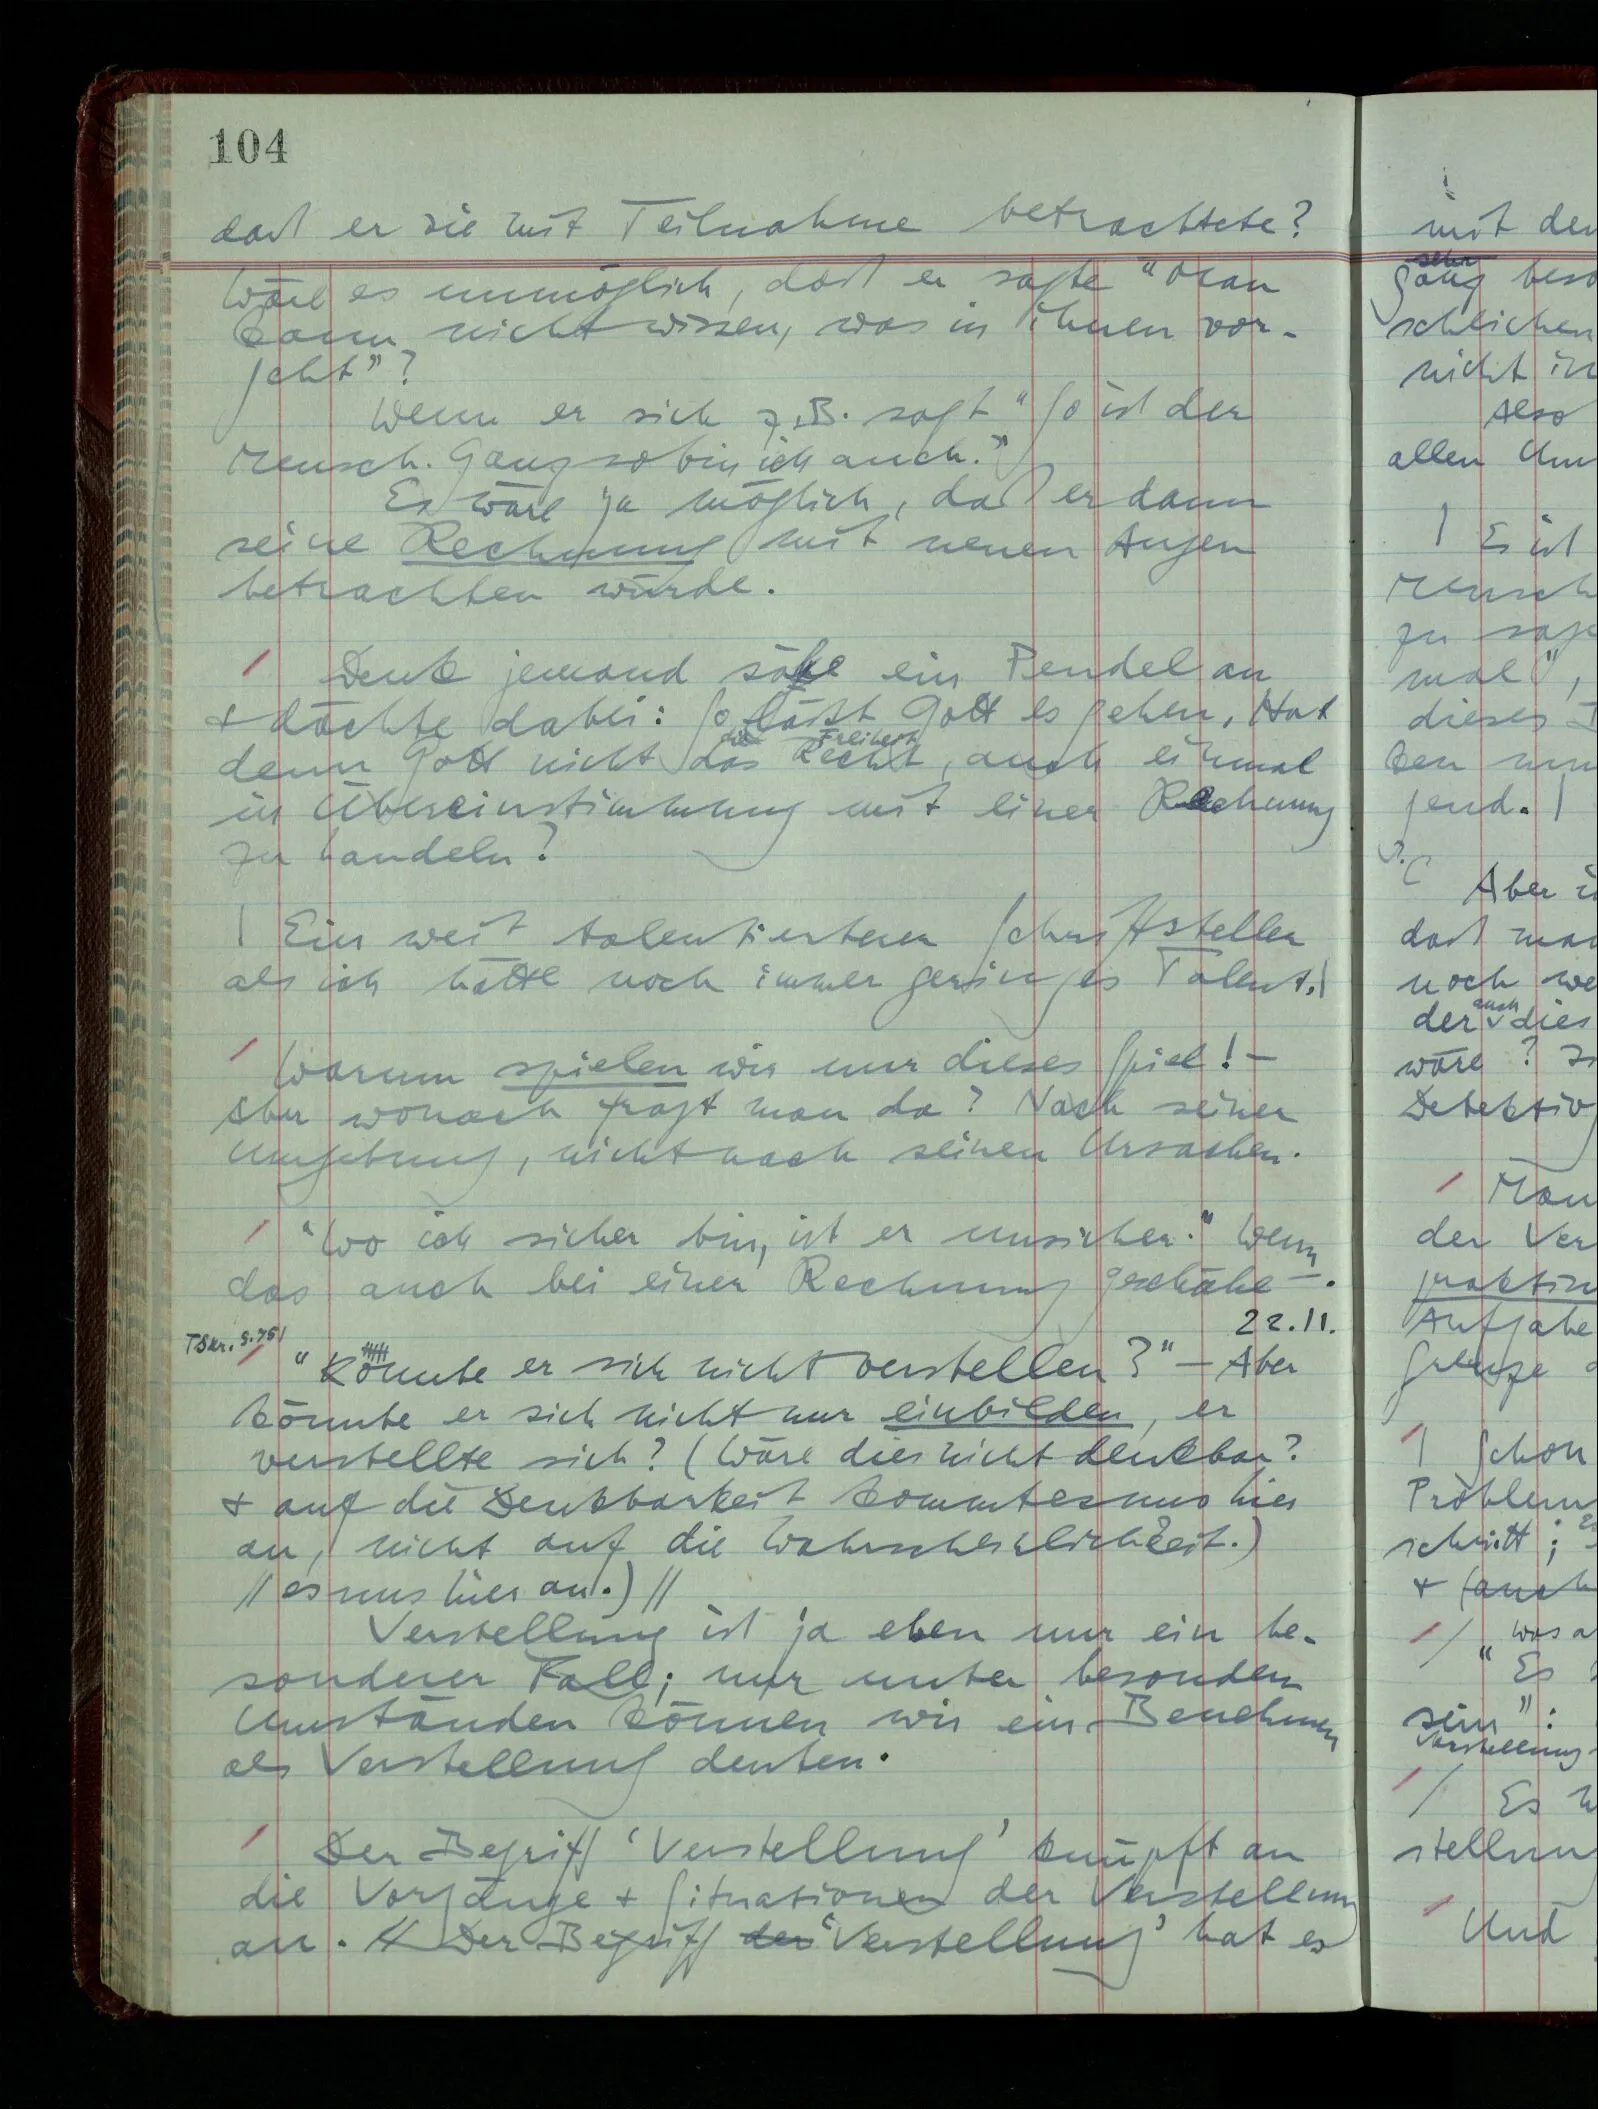 104
daß er sie mit Teilnahme betrachtete?
Wäre es unmöglich, daß er sagte "Man
kann nicht wissen, was in ihnen vor-
geht"?
Wenn er sich z.B. sagt "So ist der
Mensch. Ganz so bin ich auch."
Es wäre ja möglich, daß er dann
seine Rechnung mit neuen Augen
betrachten würde.
/ Denk jemand sähe ein Pendel an
+ dächte dabei: So läßt Gott es gehen. Hat
die Freiheit
denn Gott nicht das Recht, auch einmal
in Übereinstimmung mit einer Rechnung
zu handeln?
| Ein weit talentierterer Schriftsteller
als ich hätte noch immer geringes Talent.|
/ Warum spielen wir nur dieses Spiel! –
Aber wonach fragt man da? Nach seiner
Umgebung, nicht nach seinen Ursachen.
/ "Wo ich sicher bin, ist er unsicher." Wenn
das auch bei einer Rechnung geschähe –.
22.11.
TSkr. S.751
/ "Könnte er sich nicht verstellen?" – Aber
könnte er sich nicht nur einbilden, er
verstellte sich? (Wäre dies nicht denkbar?
+ auf die Denkbarkeit kommt es uns hier
an, nicht auf die Wahrscheinlichkeit.)
// es uns hier an.) //
Verstellung ist ja eben nur ein be-
sonderer Fall; nur unter besondern
Umständen können wir ein Benehmen
als Verstellung deuten.
/ Der Begriff 'Verstellung' knüpft an
die Vorgänge + Situationen der Verstellung
an. // Der Begriff der 'Verstellung' hat es
mit den
sehr
Ganz beso
schlichen
nicht in
Also
allen Um
| Es ist
Mensch
zu sage
mal",
dieses
ken nun
gend. |
Aber i
daß man
noch we
auch
der dies
wäre?
Detektiv
/ Man
der Ver
praktisc
Aufgabe
Grenze
| Schon
Problem
schritt;
+ (auch
Was a
/ "Es
sein":
Verstellung
/ Es
stellun
/ Und